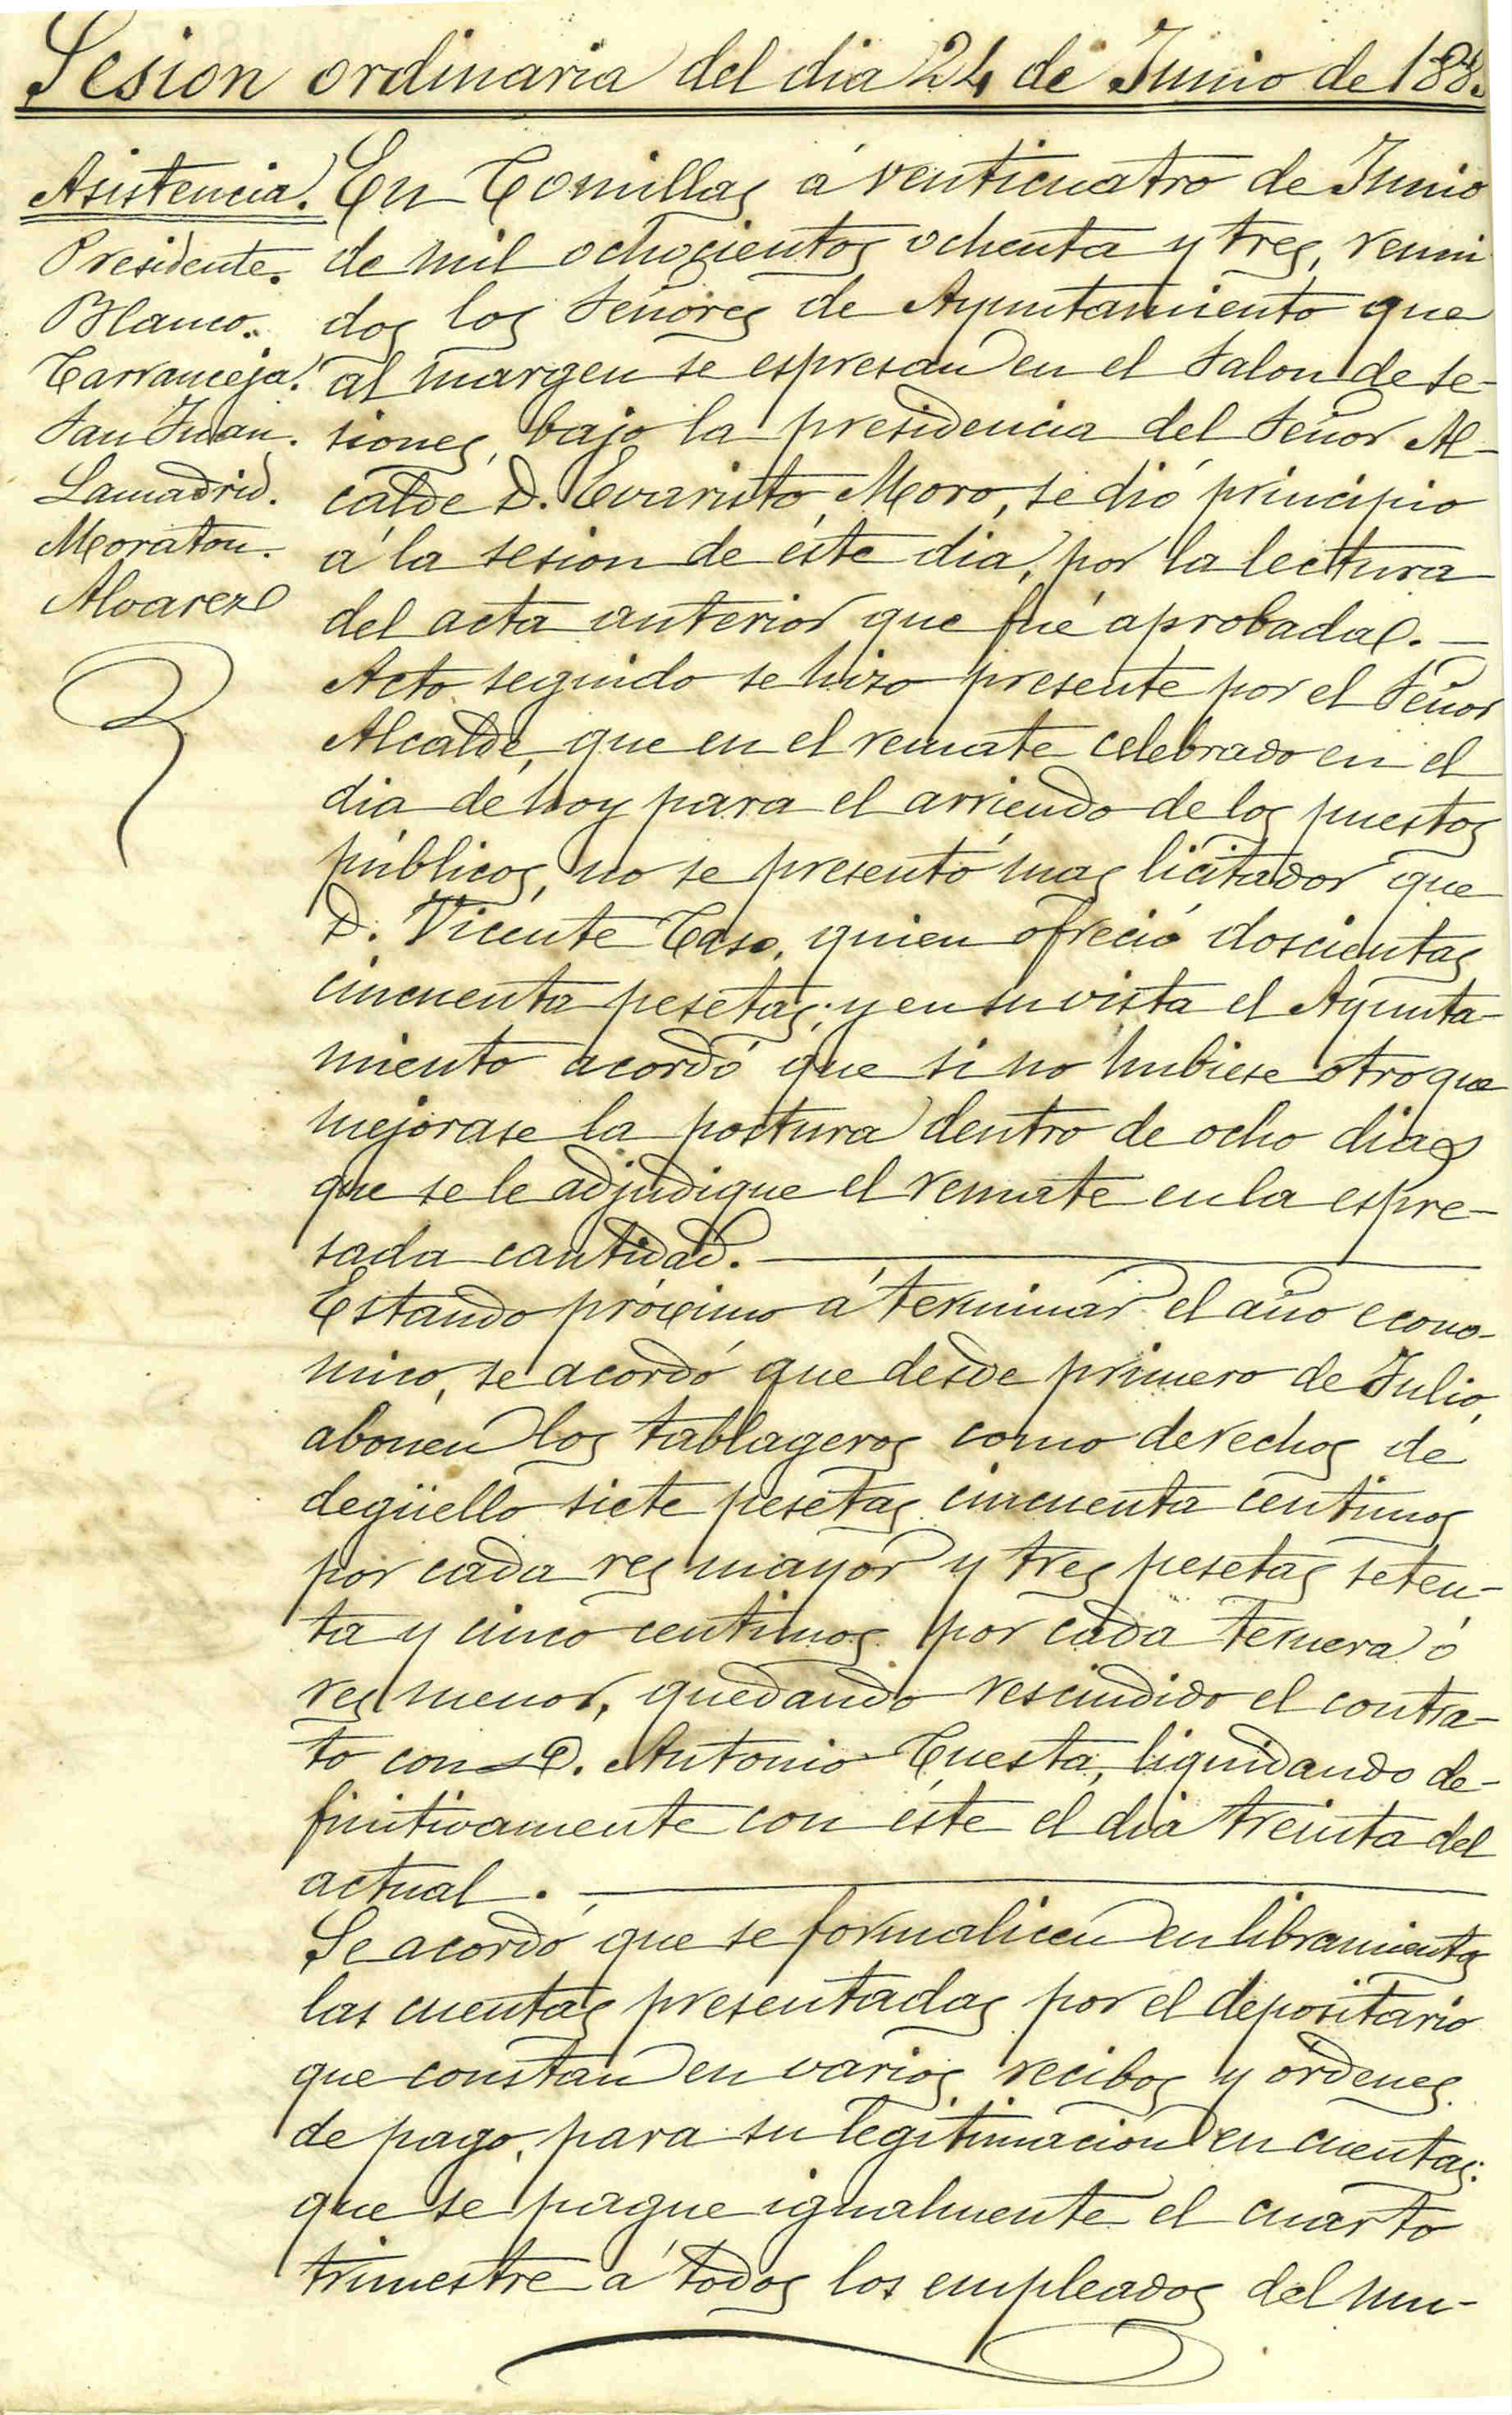 Sesion ordinaria del dia 24 de Junio de 188
Asistencia.
Presidente.
Blanco.
Carranceja.
San Juan.
Lamadrid.
Moraton.
Alvarez
En Comillas á venticuatro de Junio
de mil ochocientos ochenta y tres, reuni
dos los Señores de Ayuntamiento que
al margen se espresan en el Salon de se-
siones, bajo la presidencia del Señor Al-
calde D. Evaristo Moro, se dió principio
á la sesion de éste dia, por la lectura
del acta anterior que fué aprobada. —
Acto seguido se hizo presente por el Señor
Alcalde, que en el remate celebrado en el
dia de hoy para el arriendo de los puestos
públicos, no se presentó mas licitador que
D. Vicente Caso, quien ofreció doscientas
cincuenta pesetas; y en su vista el Ayunta-
miento acordó que si no hubiese otro que
mejorase la postura dentro de ocho dias
que se le adjudique el remate en la espre-
sada cantidad. —
Estando próximo á terminar el año econo-
mico, se acordó que desde primero de Julio,
abonen los tablageros como derechos de
degüello siete pesetas cincuenta centimos
por cada res mayor y tres pesetas seten-
ta y cinco centimos por cada ternera ó
res menor, quedando rescindido el contra-
to con D. Antonio Cuesta, liquidando de-
finitivamente con éste el dia treinta del
actual. —
Se acordó que se formalicen en libramientos
las cuentas presentadas por el depositario
que constan en varios recibos y ordenes
de pago, para su legitimacion en cuentas:
que se pague igualmente el cuarto
trimestre á todos los empleados del mu-